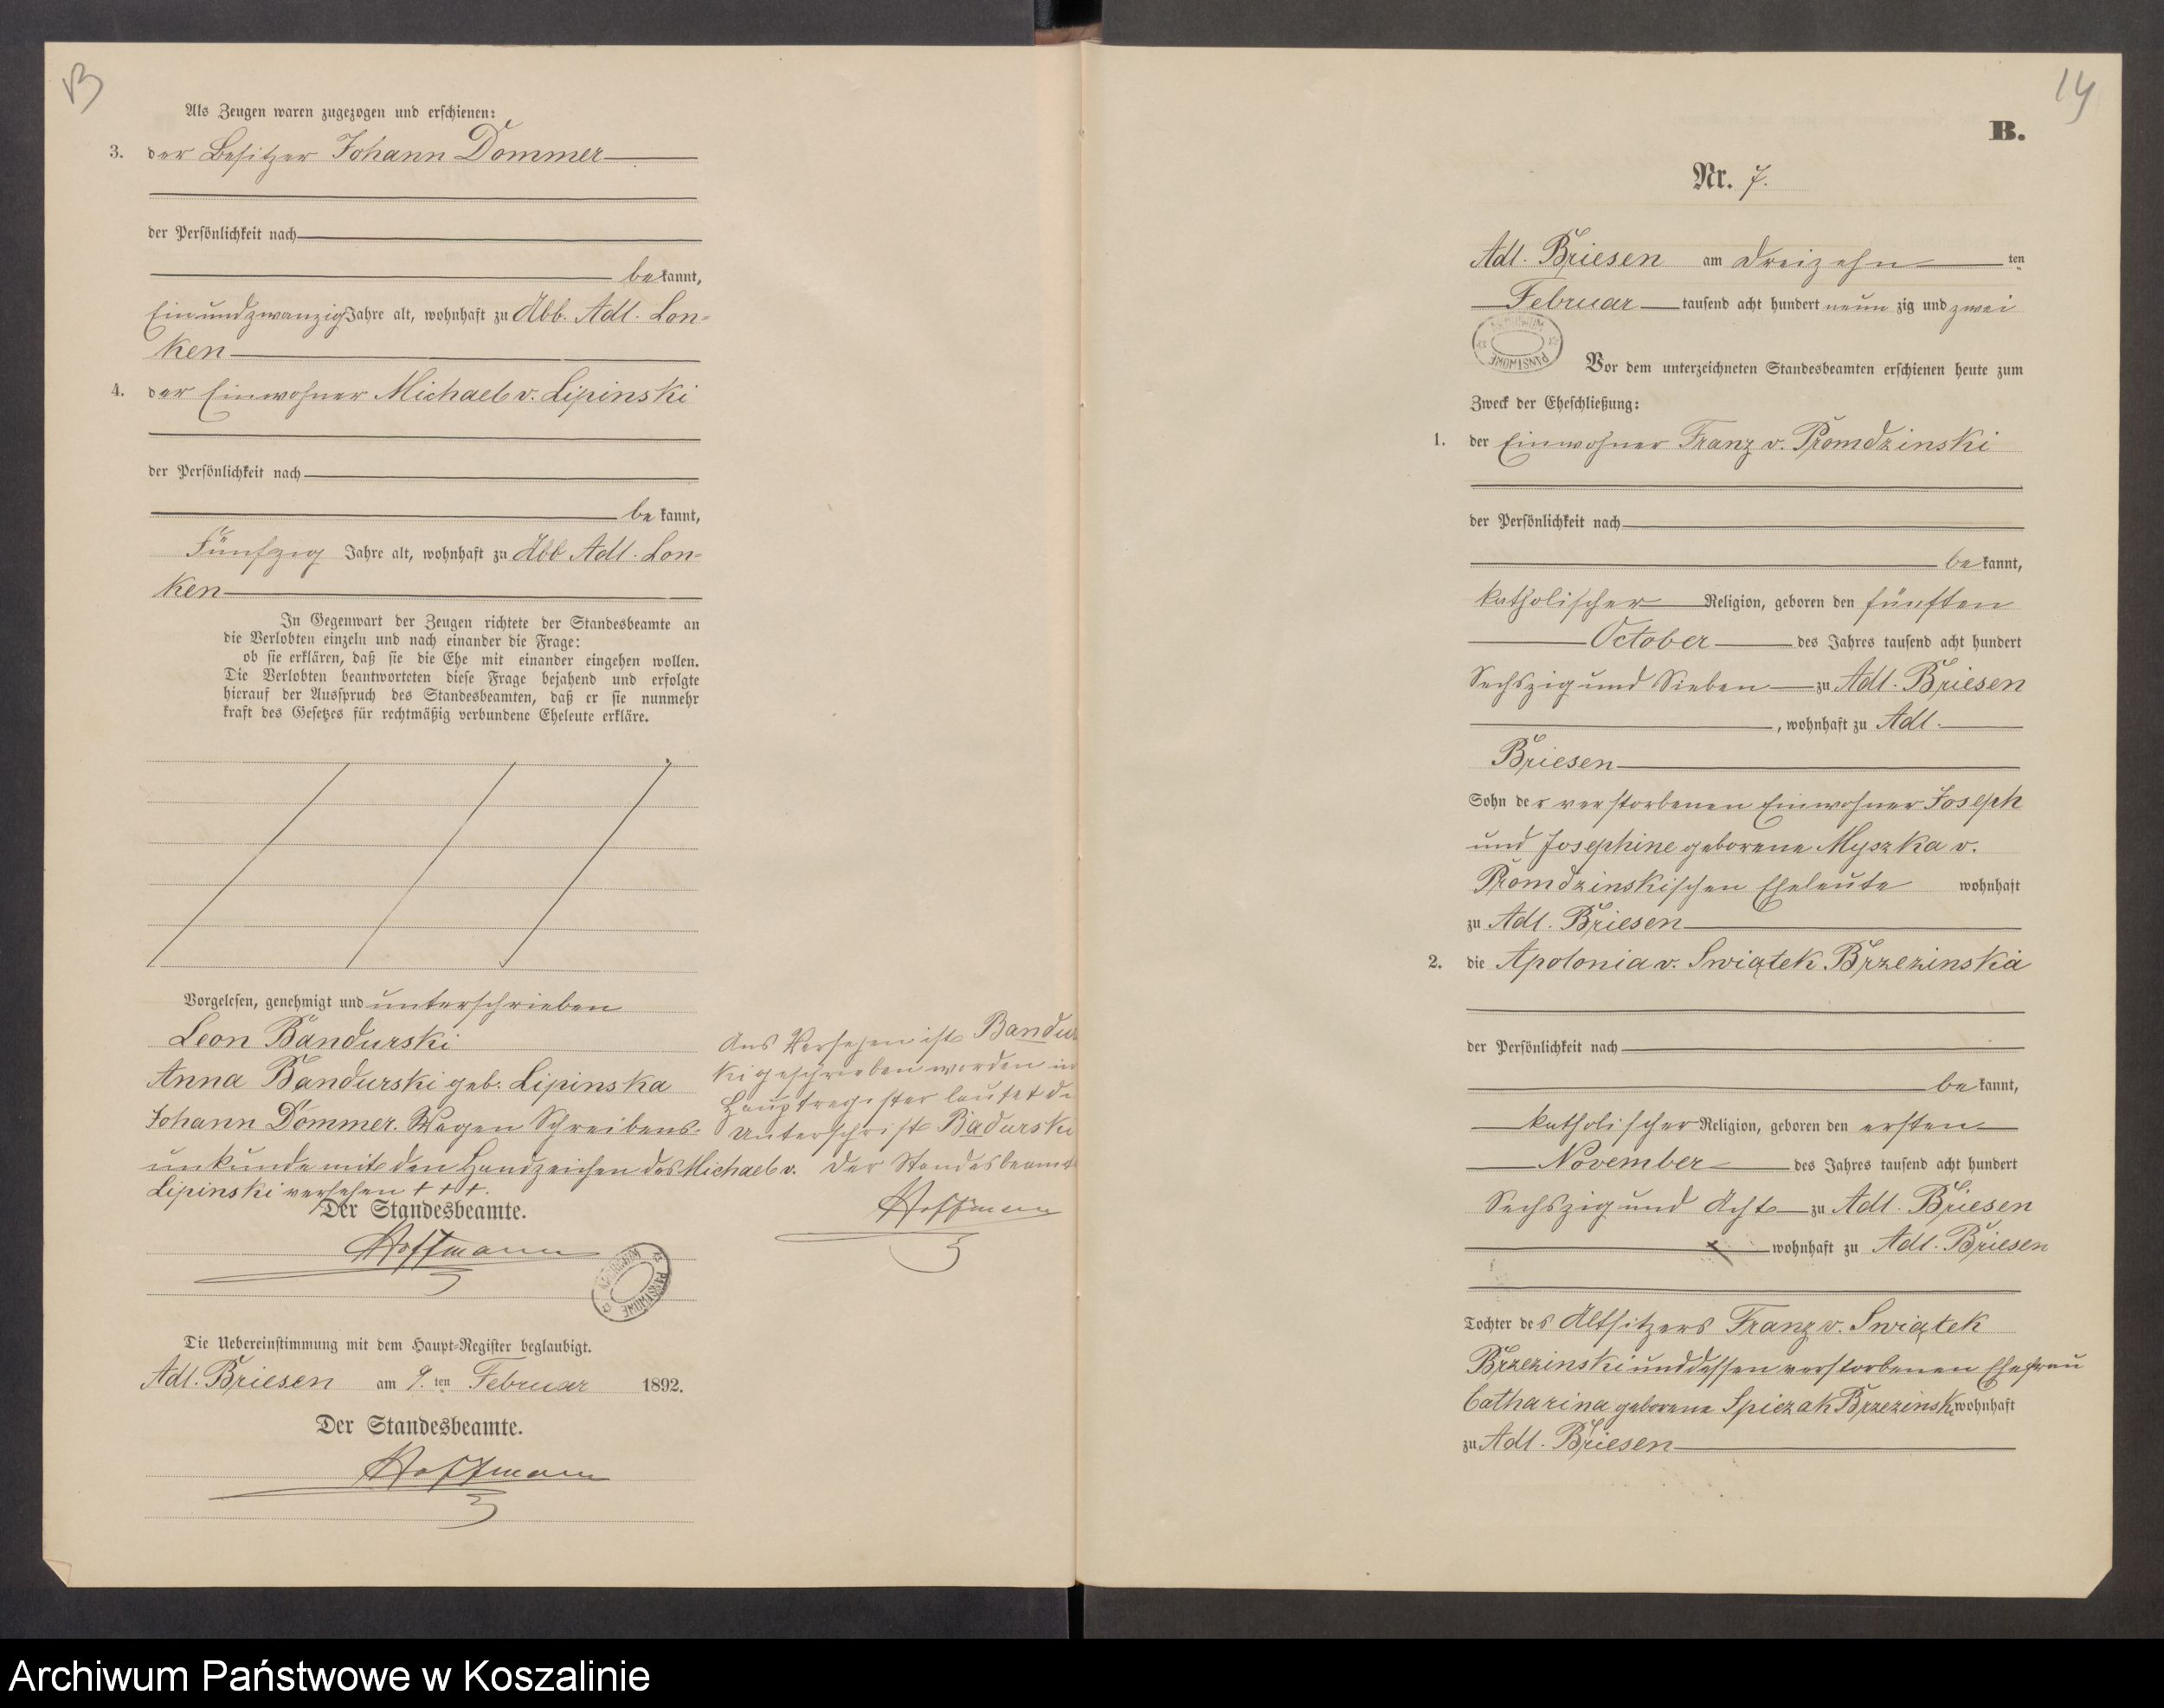 13
Als Zeugen waren zugezogen und erschienen:
3. der Besitzer Johann Dommer
der Persönlichkeit nach
bekannt,
Einundzwanzig Jahre alt, wohnhaft zu Abb. Adl. Lon=
ken
4. der Einwohner Michael v. Lipinski
der Persönlichkeit nach
be kannt,
Fünfzig Jahre alt, wohnhaft zu Abb Adl. Lon=
ken
In Gegenwart der Zeugen richtete der Standesbeamte an
die Verlobten einzeln und nach einander die Frage:
ob sie erklären, daß sie die Ehe mit einander eingehen wollen.
Die Verlobten beantworteten diese Frage bejahend und erfolgte
hierauf der Ausspruch des Standesbeamten, daß er sie nunmehr
kraft des Gesetzes für rechtmäßig verbundene Eheleute erkläre.
Vorgelesen, genehmigt und unterschrieben
Leon Bandurski
Anna Bandurski geb. Lipinska
Johann Dommer. Wegen Schreibens-
unkunde mit den Handzeichen des Michael v.
Lipinski versehen + + +.
Der Standesbeamte.
Hoffmann
Die Uebereinstimmung mit dem Haupt=Register beglaubigt.
Adl. Briesen am 9. ten Februar 1892.
Der Standesbeamte.
Hoffmann
Aus Versehen ist Bandur
ki geschrieben worden im
Hauptregister lautet di
Unterschrift Badurski
Der Standesbeamte
Hoffmann
14
B.
Nr. 7.
Adl. Briesen am dreizehn ten
Februar tausend acht hundert neun zig und zwei
Vor dem unterzeichneten Standesbeamten erschienen heute zum
Zweck der Eheschließung:
1. der Einwohner Franz v. Promdzinski
der Persönlichkeit nach
be kannt,
katholischer Religion, geboren den fünften
October des Jahres tausend acht hundert
Sechszig und Sieben zu Adl. Briesen
, wohnhaft zu Adl.
Briesen
Sohn der verstorbenen Einwohner Joseph
und Josephine geborene Myszka v.
Promdzinskischen Eheleute wohnhaft
zu Adl. Briesen
2. die Apolonia v. Swiątek Brzezinska
der Persönlichkeit nach
be kannt,
katholischer Religion, geboren den ersten
November des Jahres tausend acht hundert
Sechszig und Acht zu Adl. Briesen
wohnhaft zu Adl. Briesen
Tochter des Altsitzers Franz v. Swiątek
Brzezinski und dessen verstorbenen Ehefrau
Catharina geborene Spiczak Brzezinski wohnhaft
zu Adl. Briesen
Archiwum Państwowe w Koszalinie